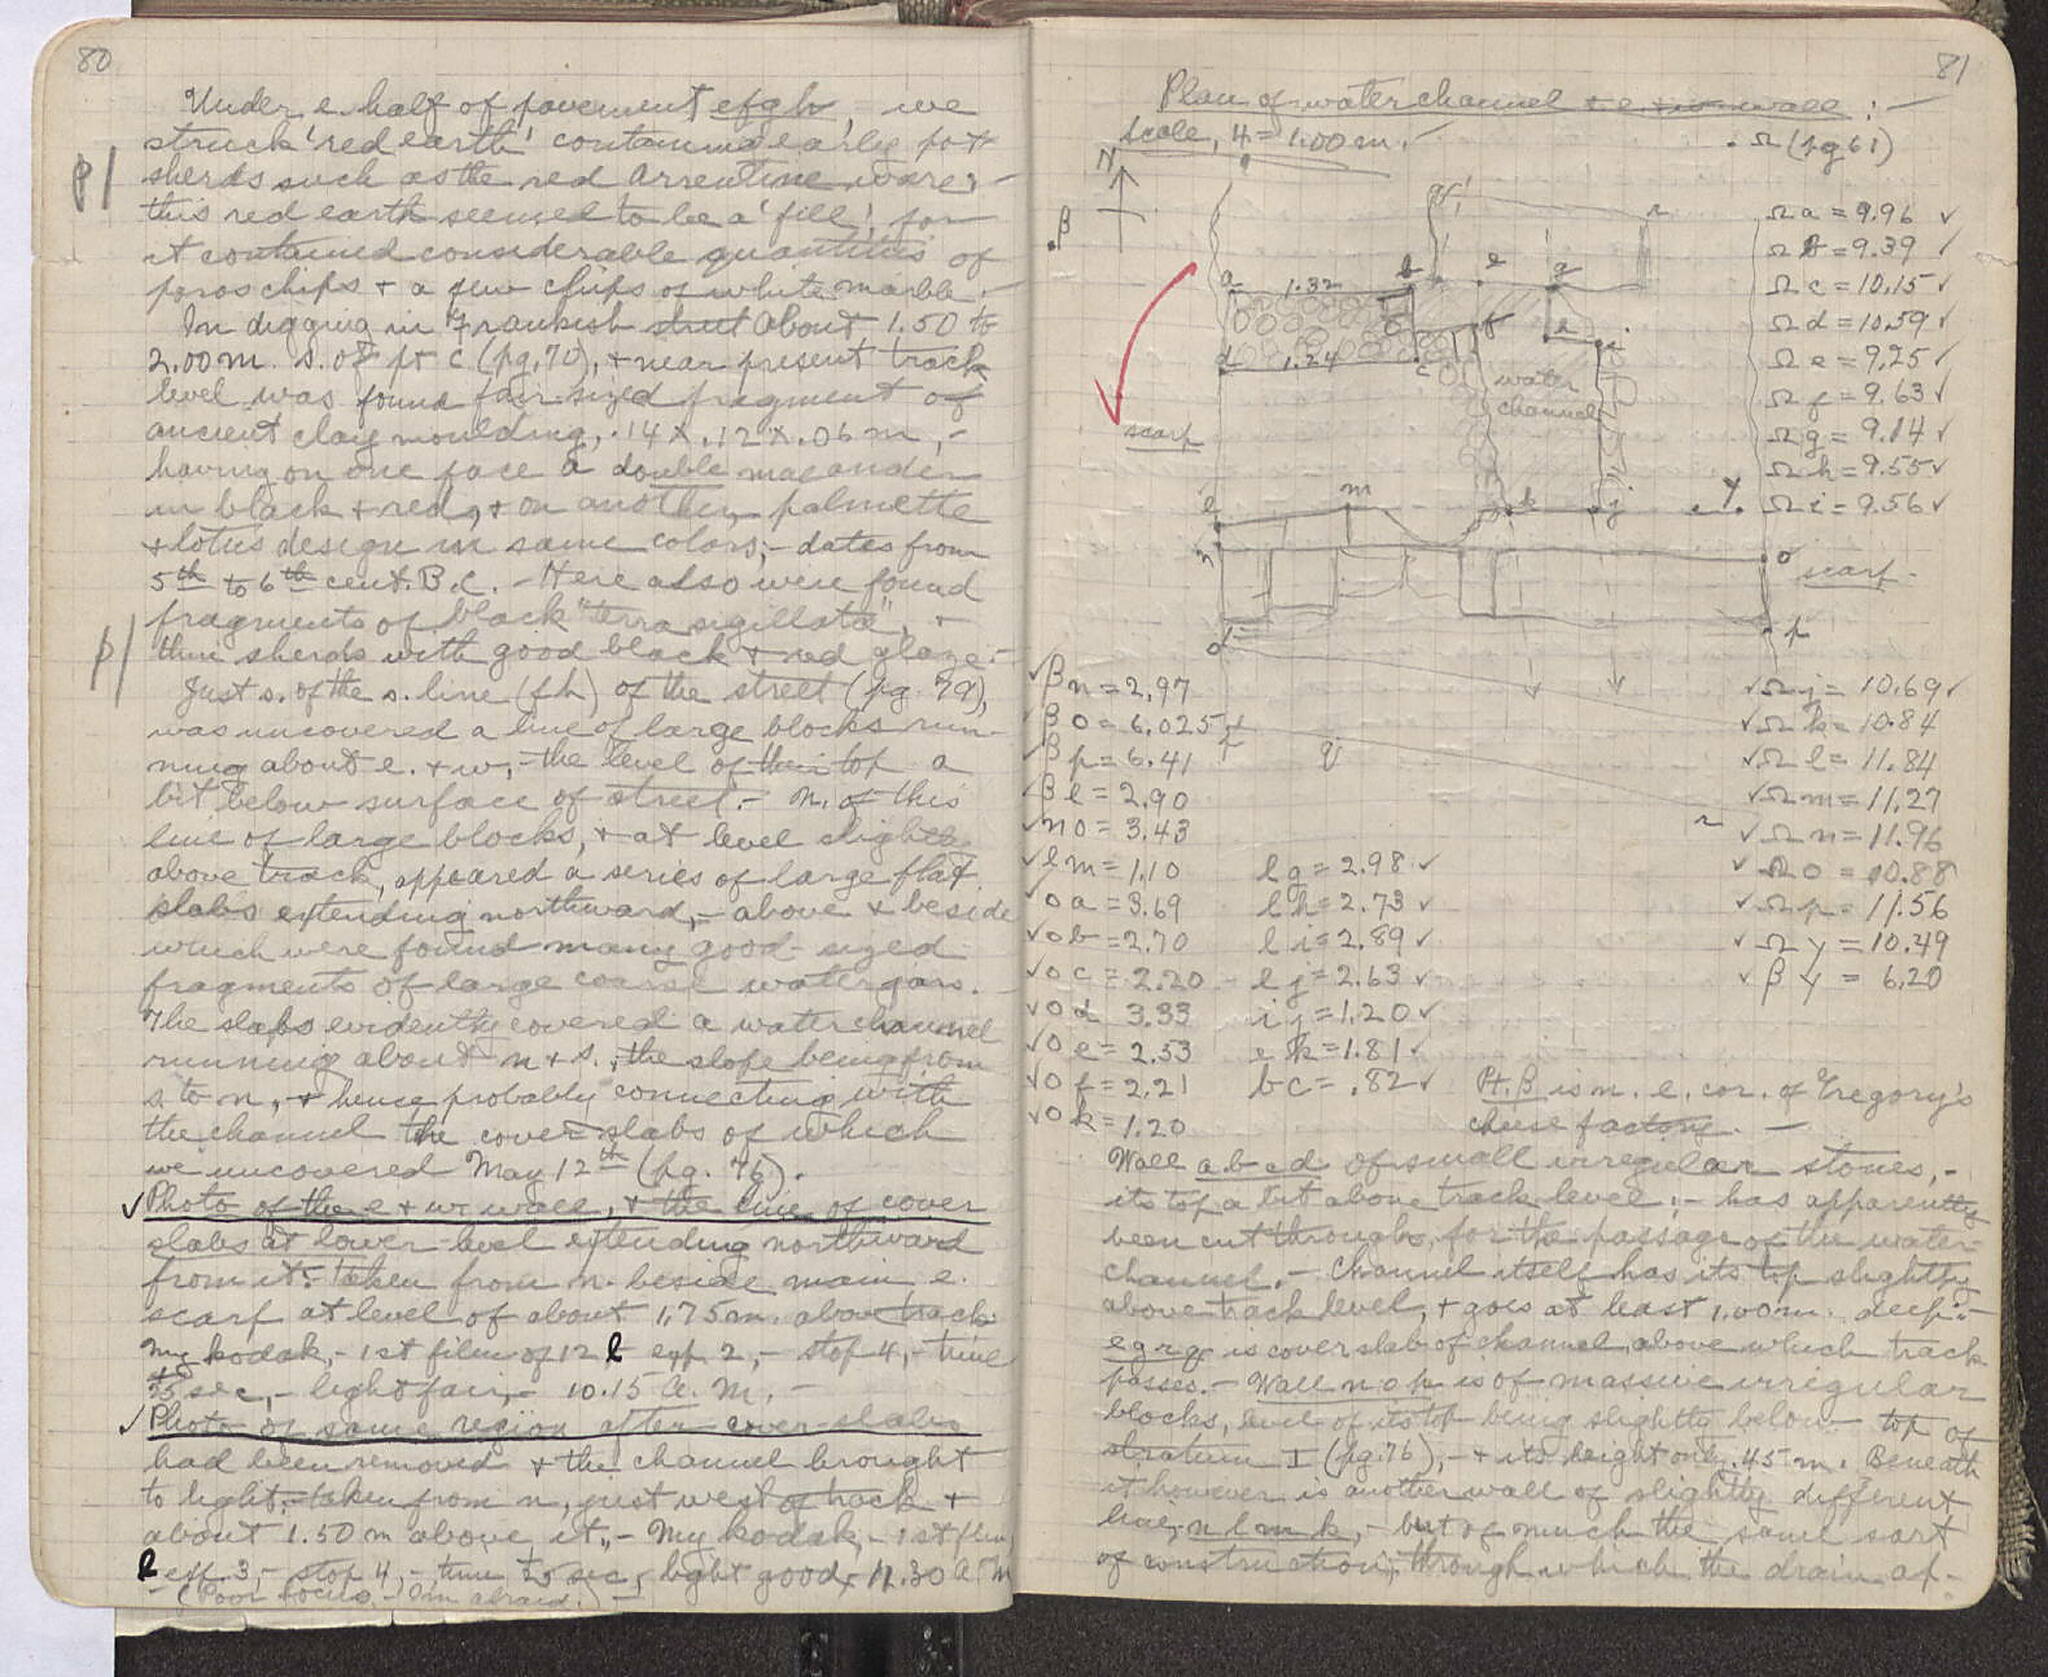 80
Under e. half of pavement efgh, we
struck 'red earth' containing early pot
sherds such as the red Arrentine ware; -
this red earth seemed to be a 'fill', for
it contained considerable quantities of
poros chips + a few chips of white marble. -
In digging in Frankish street about 1.50 to
2.00 m. s. of pt c (pg. 70), + near present track
level was found fair-sized fragment of
ancient clay moulding, .14 x .12 x .06 m, -
having on one face a double maeander
in black + red, + on another, palmette
+ lotus design in same colors; - dates from
5th to 6th cent. B.C. - Here also were found
fragments of black "terra sigillata", +
thin sherds with good black + red glaze. -
Just s. of the s. line (fh) of the street (pg. 79),
was uncovered a line of large blocks run-
ning about e. + w, - the level of their top a
bit below surface of street. - N. of this
line of large blocks, + at level slightly
above track, appeared a series of large flat
slabs extending northward, - above + beside
which were found many good-sized
fragments of large coarse water jars. -
The slabs evidently covered a water channel
running about n + s., the slope being from
s. to n, + hence probably connecting with
the channel the cover slabs of which
we uncovered May 12th (pg. 76).
✓ Photo of the e + w wall, + the line of cover
slabs at lower level extending northward
from it. - Taken from n. beside main e.
scarp at level of about 1.75 m. above track
My kodak, - 1st film of 12 l exp 2, - stop 4, - time
1/25 sec, - light fair, - 10.15 A.M. -
✓ Photo of same region after cover-slabs
had been removed + the channel brought
to light; - taken from n, just west of track +
about 1.50 m above it. - My kodak, - 1st film
l exp. 3, - stop 4, - time 1/25 sec, light good, 11.30 A M
(Poor focus, - I'm afraid.) -
p/
p/
81
Plan of water channel + e + w wall : -
Scale, 4 = 1.00 m.
N
. Ω (pg 61)
β
q r
a 1.32 b e g
d 1.24 c f h i
water
channel
scarp
l m k j y
n o scarp
p
Ω a = 9.96 ✓
Ω b = 9.39 ✓
Ω c = 10.15 ✓
Ω d = 10.59 ✓
Ω e = 9.25 ✓
Ω f = 9.63 ✓
Ω g = 9.14 ✓
Ω h = 9.55 ✓
Ω i = 9.56 ✓
✓ Ω j = 10.69 ✓
✓ Ω k = 10.84
✓ Ω l = 11.84
✓ Ω m = 11.27
✓ Ω n = 11.96
✓ Ω o = 10.88
✓ Ω p = 11.56
✓ Ω y = 10.49
✓ β y = 6.20
✓ β n = 2.97
✓ β o = 6.025
✓ β p = 6.41
✓ β l = 2.90
✓ n o = 3.43
✓ l m = 1.10
✓ o a = 3.69
✓ o b = 2.70
✓ o c = 2.20
✓ o d 3.33
✓ o e = 2.53
✓ o f = 2.21
✓ o k = 1.20
l g = 2.98 ✓
l h = 2.73 ✓
l i = 2.89 ✓
l j = 2.63 ✓
i j = 1.20 ✓
e k = 1.81 ✓
b c = .82 ✓
q
r
Pt. β is n. e. cor. of Gregory's
cheese factory. -
Wall a b c d of small irregular stones, -
its top a bit above track level; - has apparently
been cut through for the passage of the water-
channel. - Channel itself has its top slightly
above track level, + goes at least 1.00 m. deep. -
e g r q is cover slab of channel above which track
passes. - Wall n o p is of massive irregular
blocks, level of its top being slightly below top of
stratum I (pg. 76), - + its height only .45 m. Beneath
it however is another wall of slightly different
line, n l m k, - but of much the same sort
of construction, through which the drain ap-